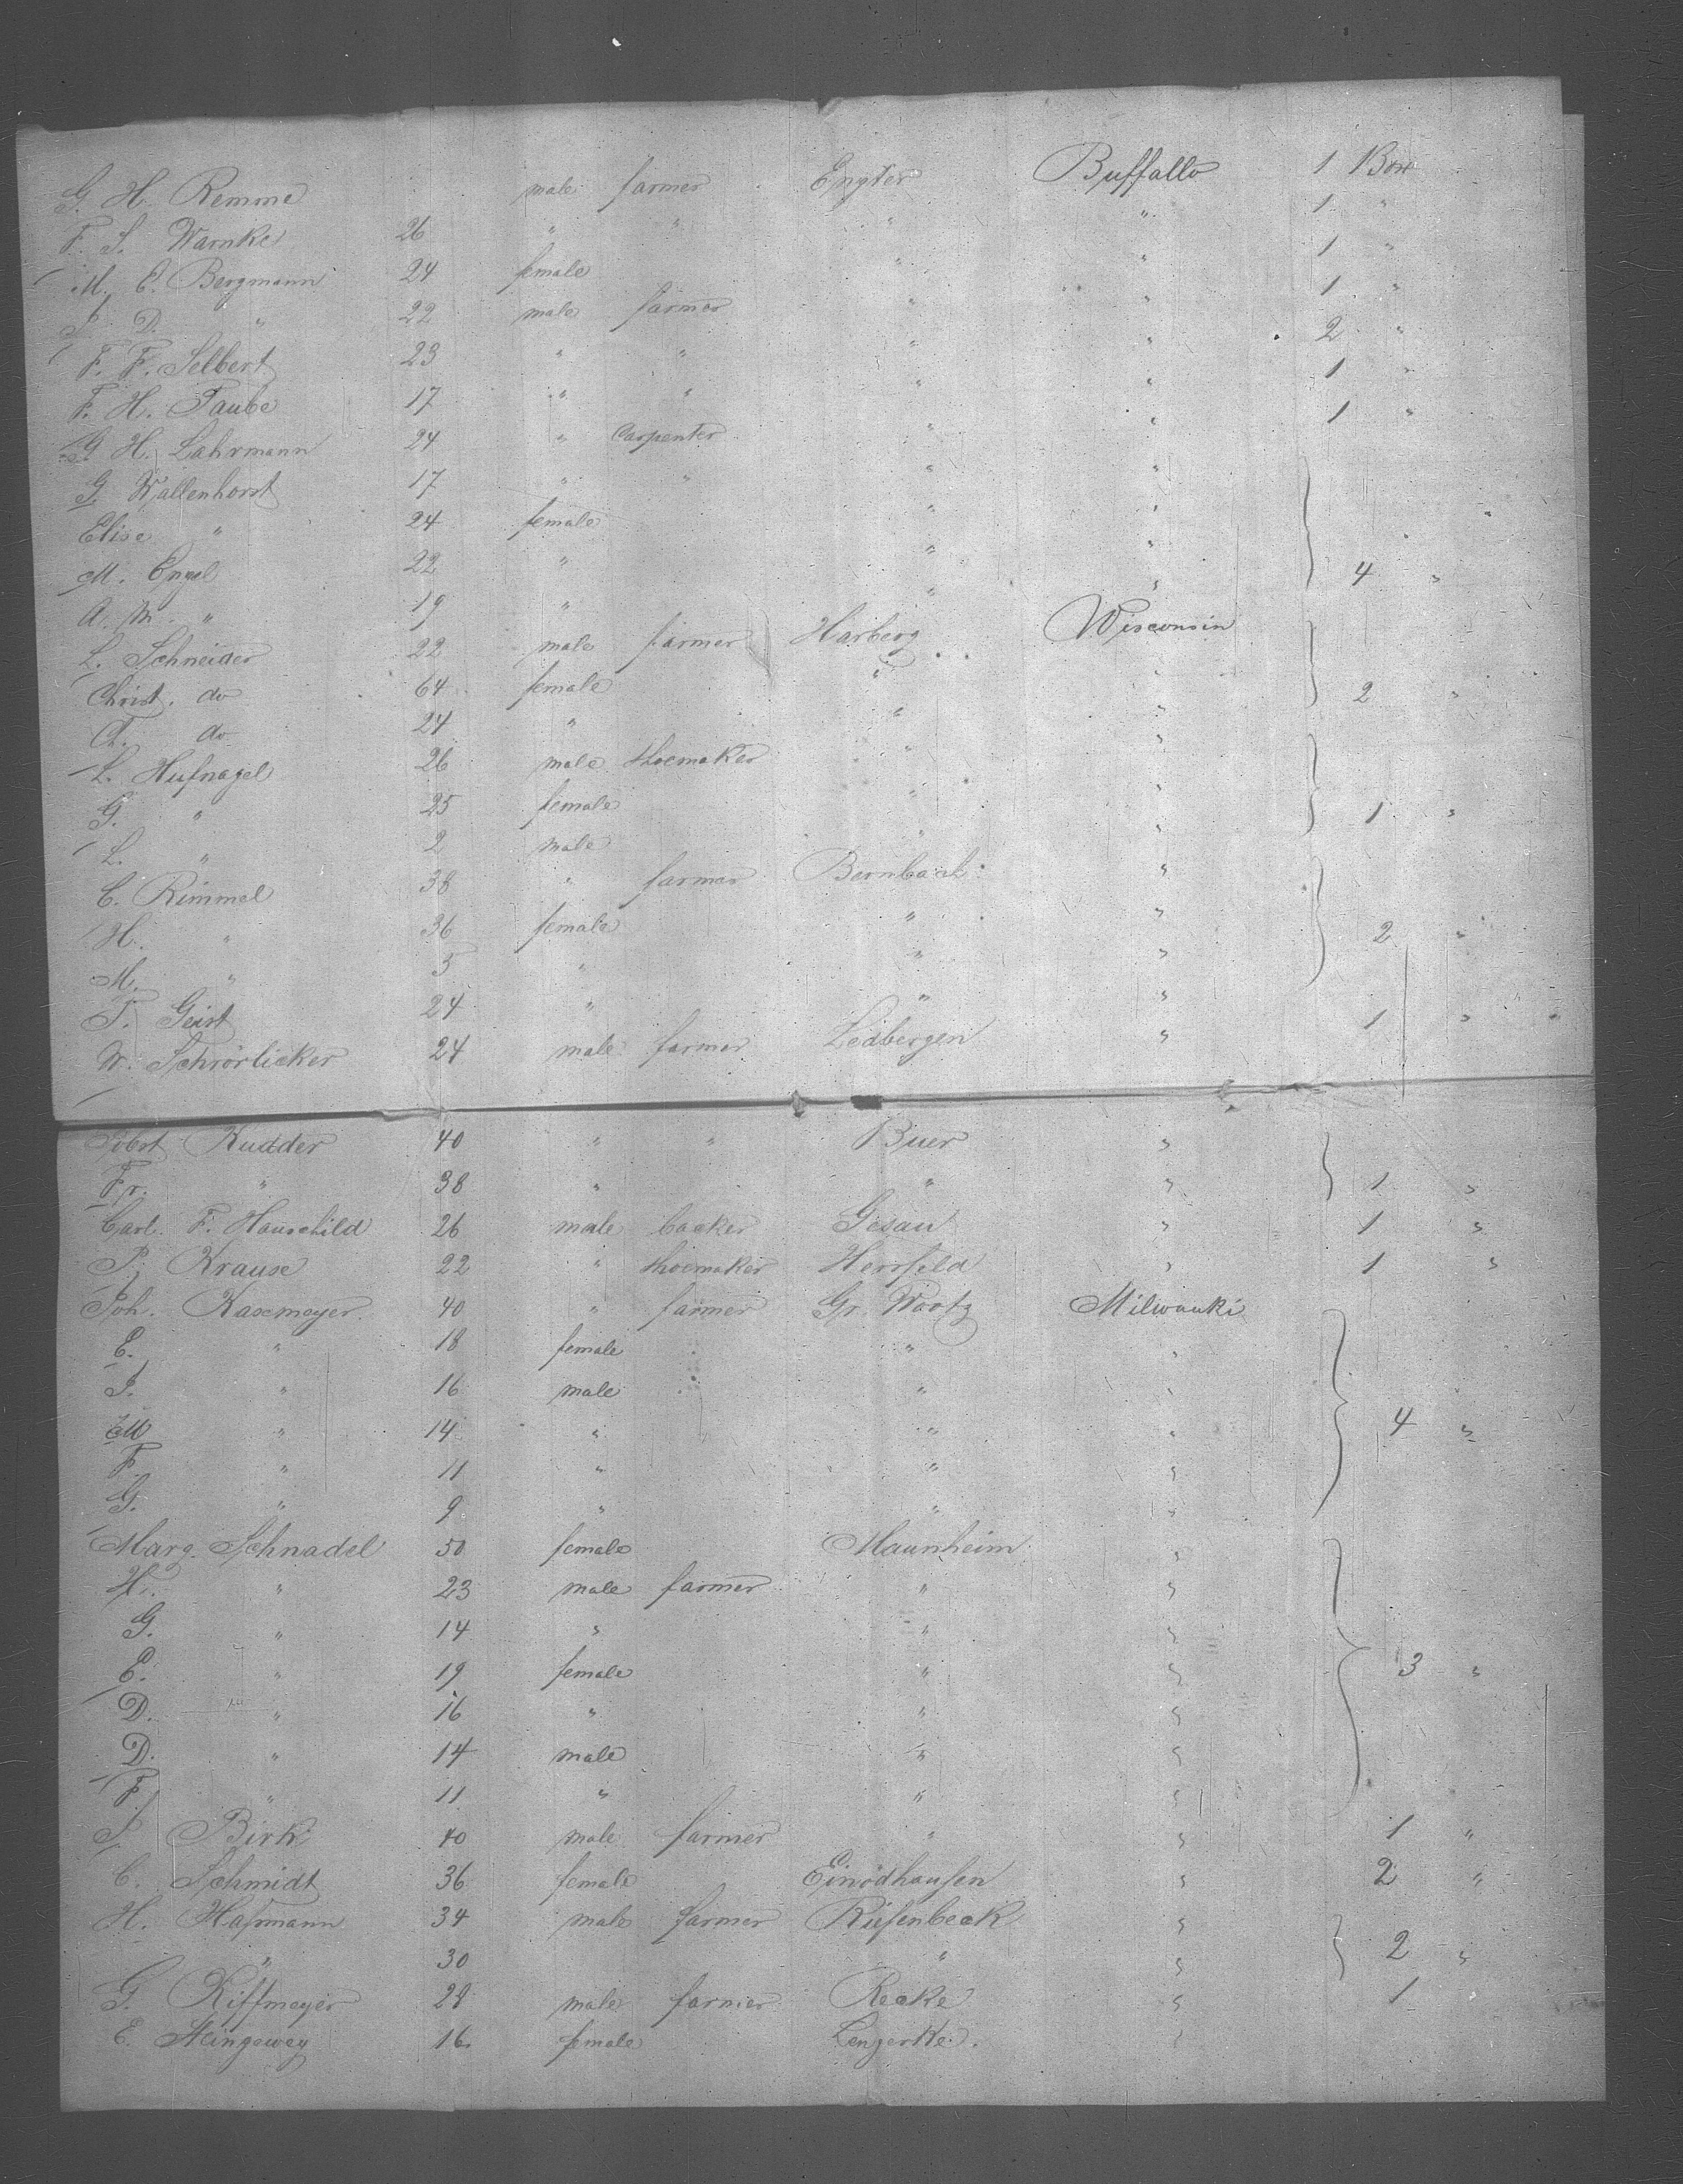 G. H. Remme male farmer Engter Buffallo 1 Box
F. S. Warnke 26 " " " " 1 "
M. C. Bergmann 24 female " " 1 "
J. D. " 22 male farmer " " 1 "
F. F. Selbert 23 " " " " 2 "
F. H. Taube 17 " " " " 1 "
G. H. Lahrmann 24 " Carpenter " " 1 "
G. Wallenhorst 17 " " " "
Elise " 24 female " "
M. Engel 22 " " " 4 "
A. M. " 19 " " "
L. Schneider 22 male farmer Harberg Wisconsin
Christ. do 64 female " " 2 "
Ch. do 24 " " "
L. Hufnagel 26 male shoemaker " "
G. " 25 female " " 1 "
L. " 2 male " "
C. Rimmel 38 " farmer Bernbach "
H. " 36 female " " 2 "
M. " 5 " " "
T. Geist 24 " " " 1 "
W. Schrörlicker 24 male farmer Ledbergen "
Kudder 40 " " Buer "
Fr. " 38 " " " 1 "
Carl. F. Hauschild 26 male backer Gesau " 1 "
P. Krause 22 " shoemaker Hersfeld " 1 "
Joh. Kasemeyer 40 " farmer Gr. Wootz Milwauki
E. " 18 female " "
J. " 16 male " "
M " 14 " " " 4 "
F. " 11 " " "
G. " 9 " " "
Marg. Schnadel 50 female Maunheim "
H. " 23 male farmer " "
G. " 14 " " "
E. " 19 female " " 3 "
D. " 16 " " "
D. " 14 male " "
F. " 11 " " "
J. Birk 40 male farmer " " 1 "
C. Schmidt 36 female Einödhausen " 2 "
H. Hasmann 34 male farmer Riesenbeck "
" 30 " " 2 "
G. Kiffmeyer 28 male farmer Recke " 1
E. Heingeweg 16. female Lengerke. "